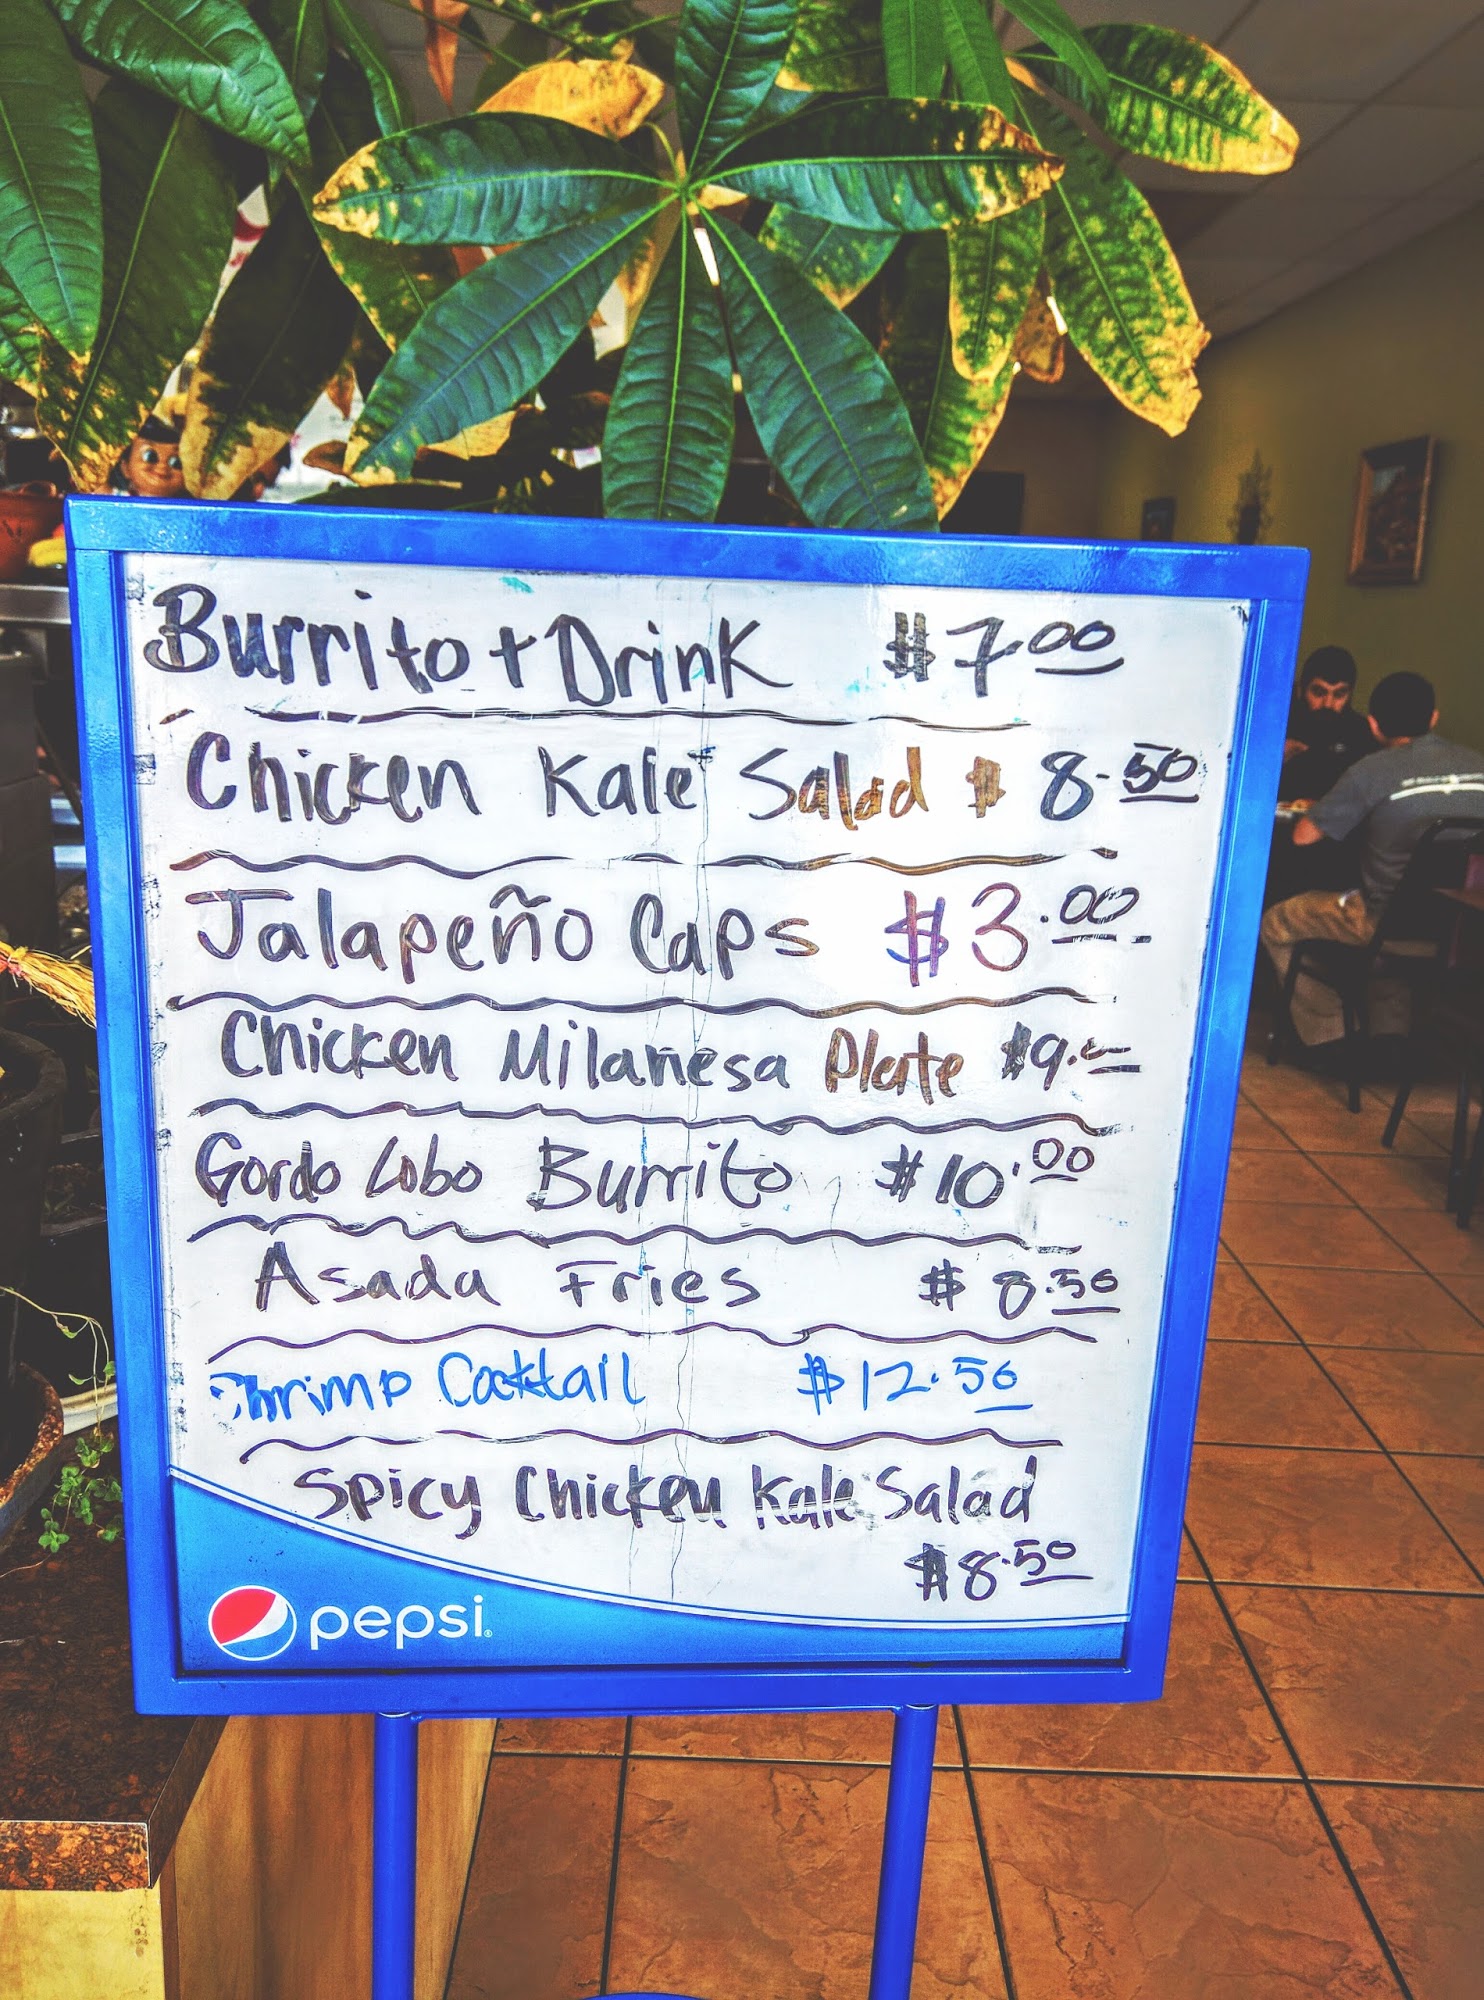 Burrito + Drink $7.00
Chicken Kale Salad $8.50
Jalapeño Caps $3.00
Chicken Milanesa Plate $9.00
Gordo Lobo Burrito $10.00
Asada Fries $8.50
Shrimp Cocktail $12.50
Spicy Chicken Kale Salad
$8.50
pepsi